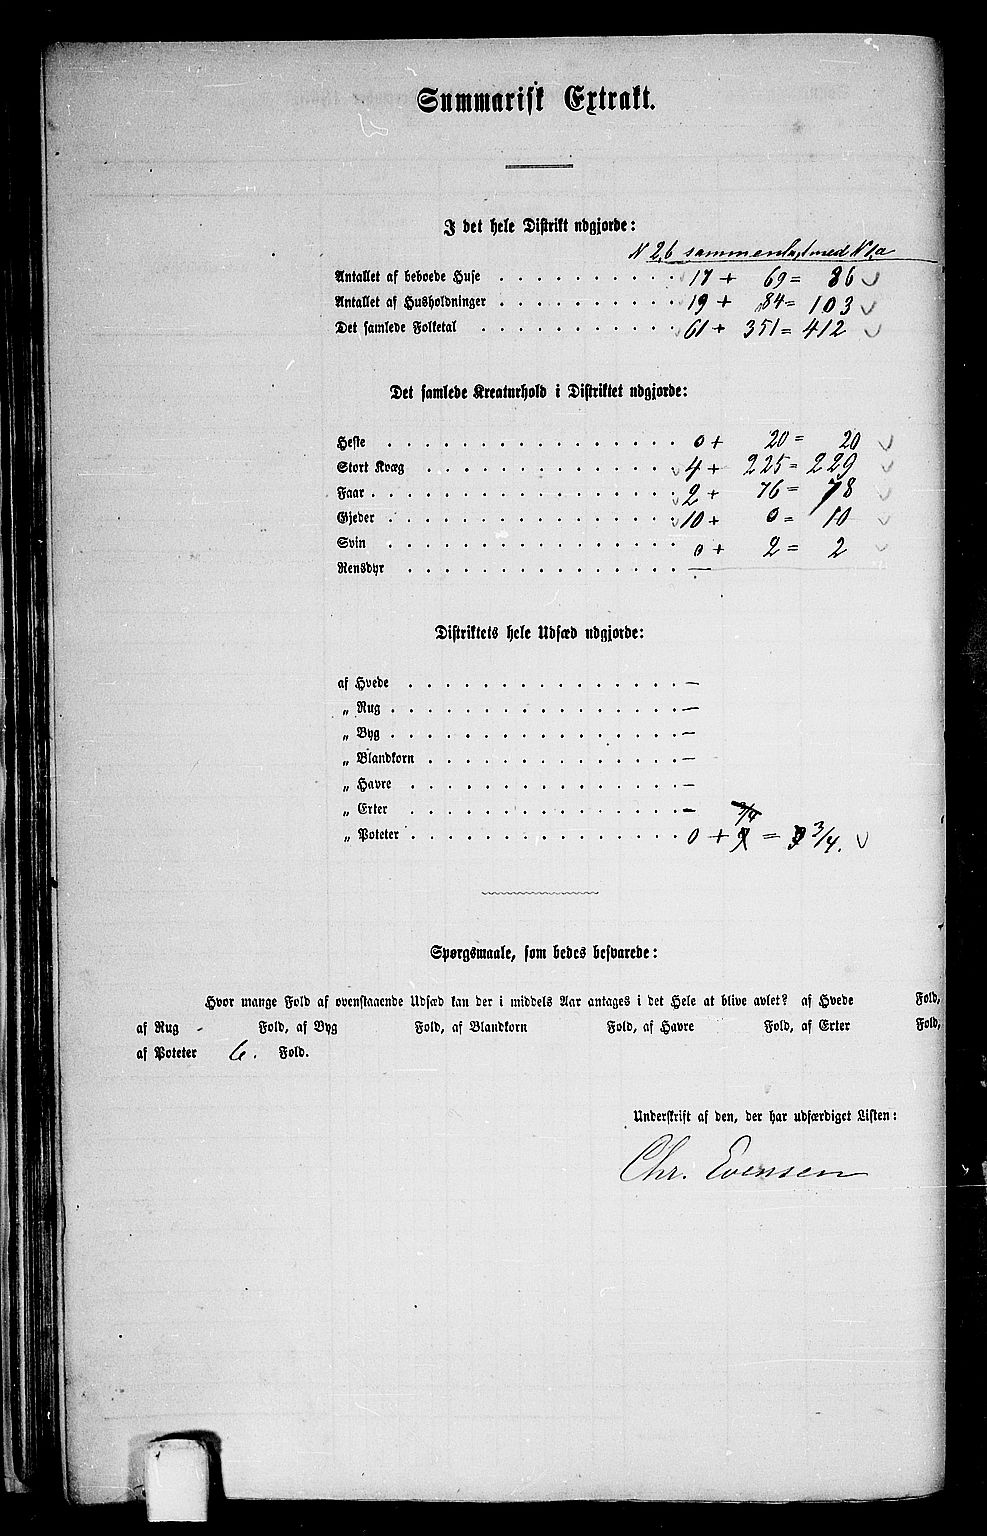 Summarisk Extrakt.
I det hele Distrikt udgjorde:
N 2,b sammenlagt med N 1,a
Antallet af beboede Huse 17 + 69 = 86
Antallet af Husholdninger 19 + 84 = 103
Det samlede Folketal 61 + 351 = 412
Det samlede Kreaturhold i Distriktet udgjorde:
Heste 0 + 20 = 20
Stort Kvæg 4 + 225 = 229
Faar 2 + 76 = 78
Gjeder 10 + 0 = 10
Svin 0 + 2 = 2
Rensdyr —
Distriktets hele Udsæd udgjorde:
af Hvede —
„ Rug —
„ Byg —
„ Blandkorn —
„ Havre —
„ Erter —
3/4
„ Poteter 0 + = 3/4.
Spørgsmaale, som bedes besvarede:
Hvor mange Fold af ovenstaaende Udsæd kan der i middels Aar antages i det Hele at blive avlet? af Hvede Fold,
af Rug - Fold, af Byg Fold, af Blandkorn Fold, af Havre Fold, af Erter Fold,
af Poteter 6. Fold.
Underskrift af den, der har udfærdiget Listen:
Chr. Evensen